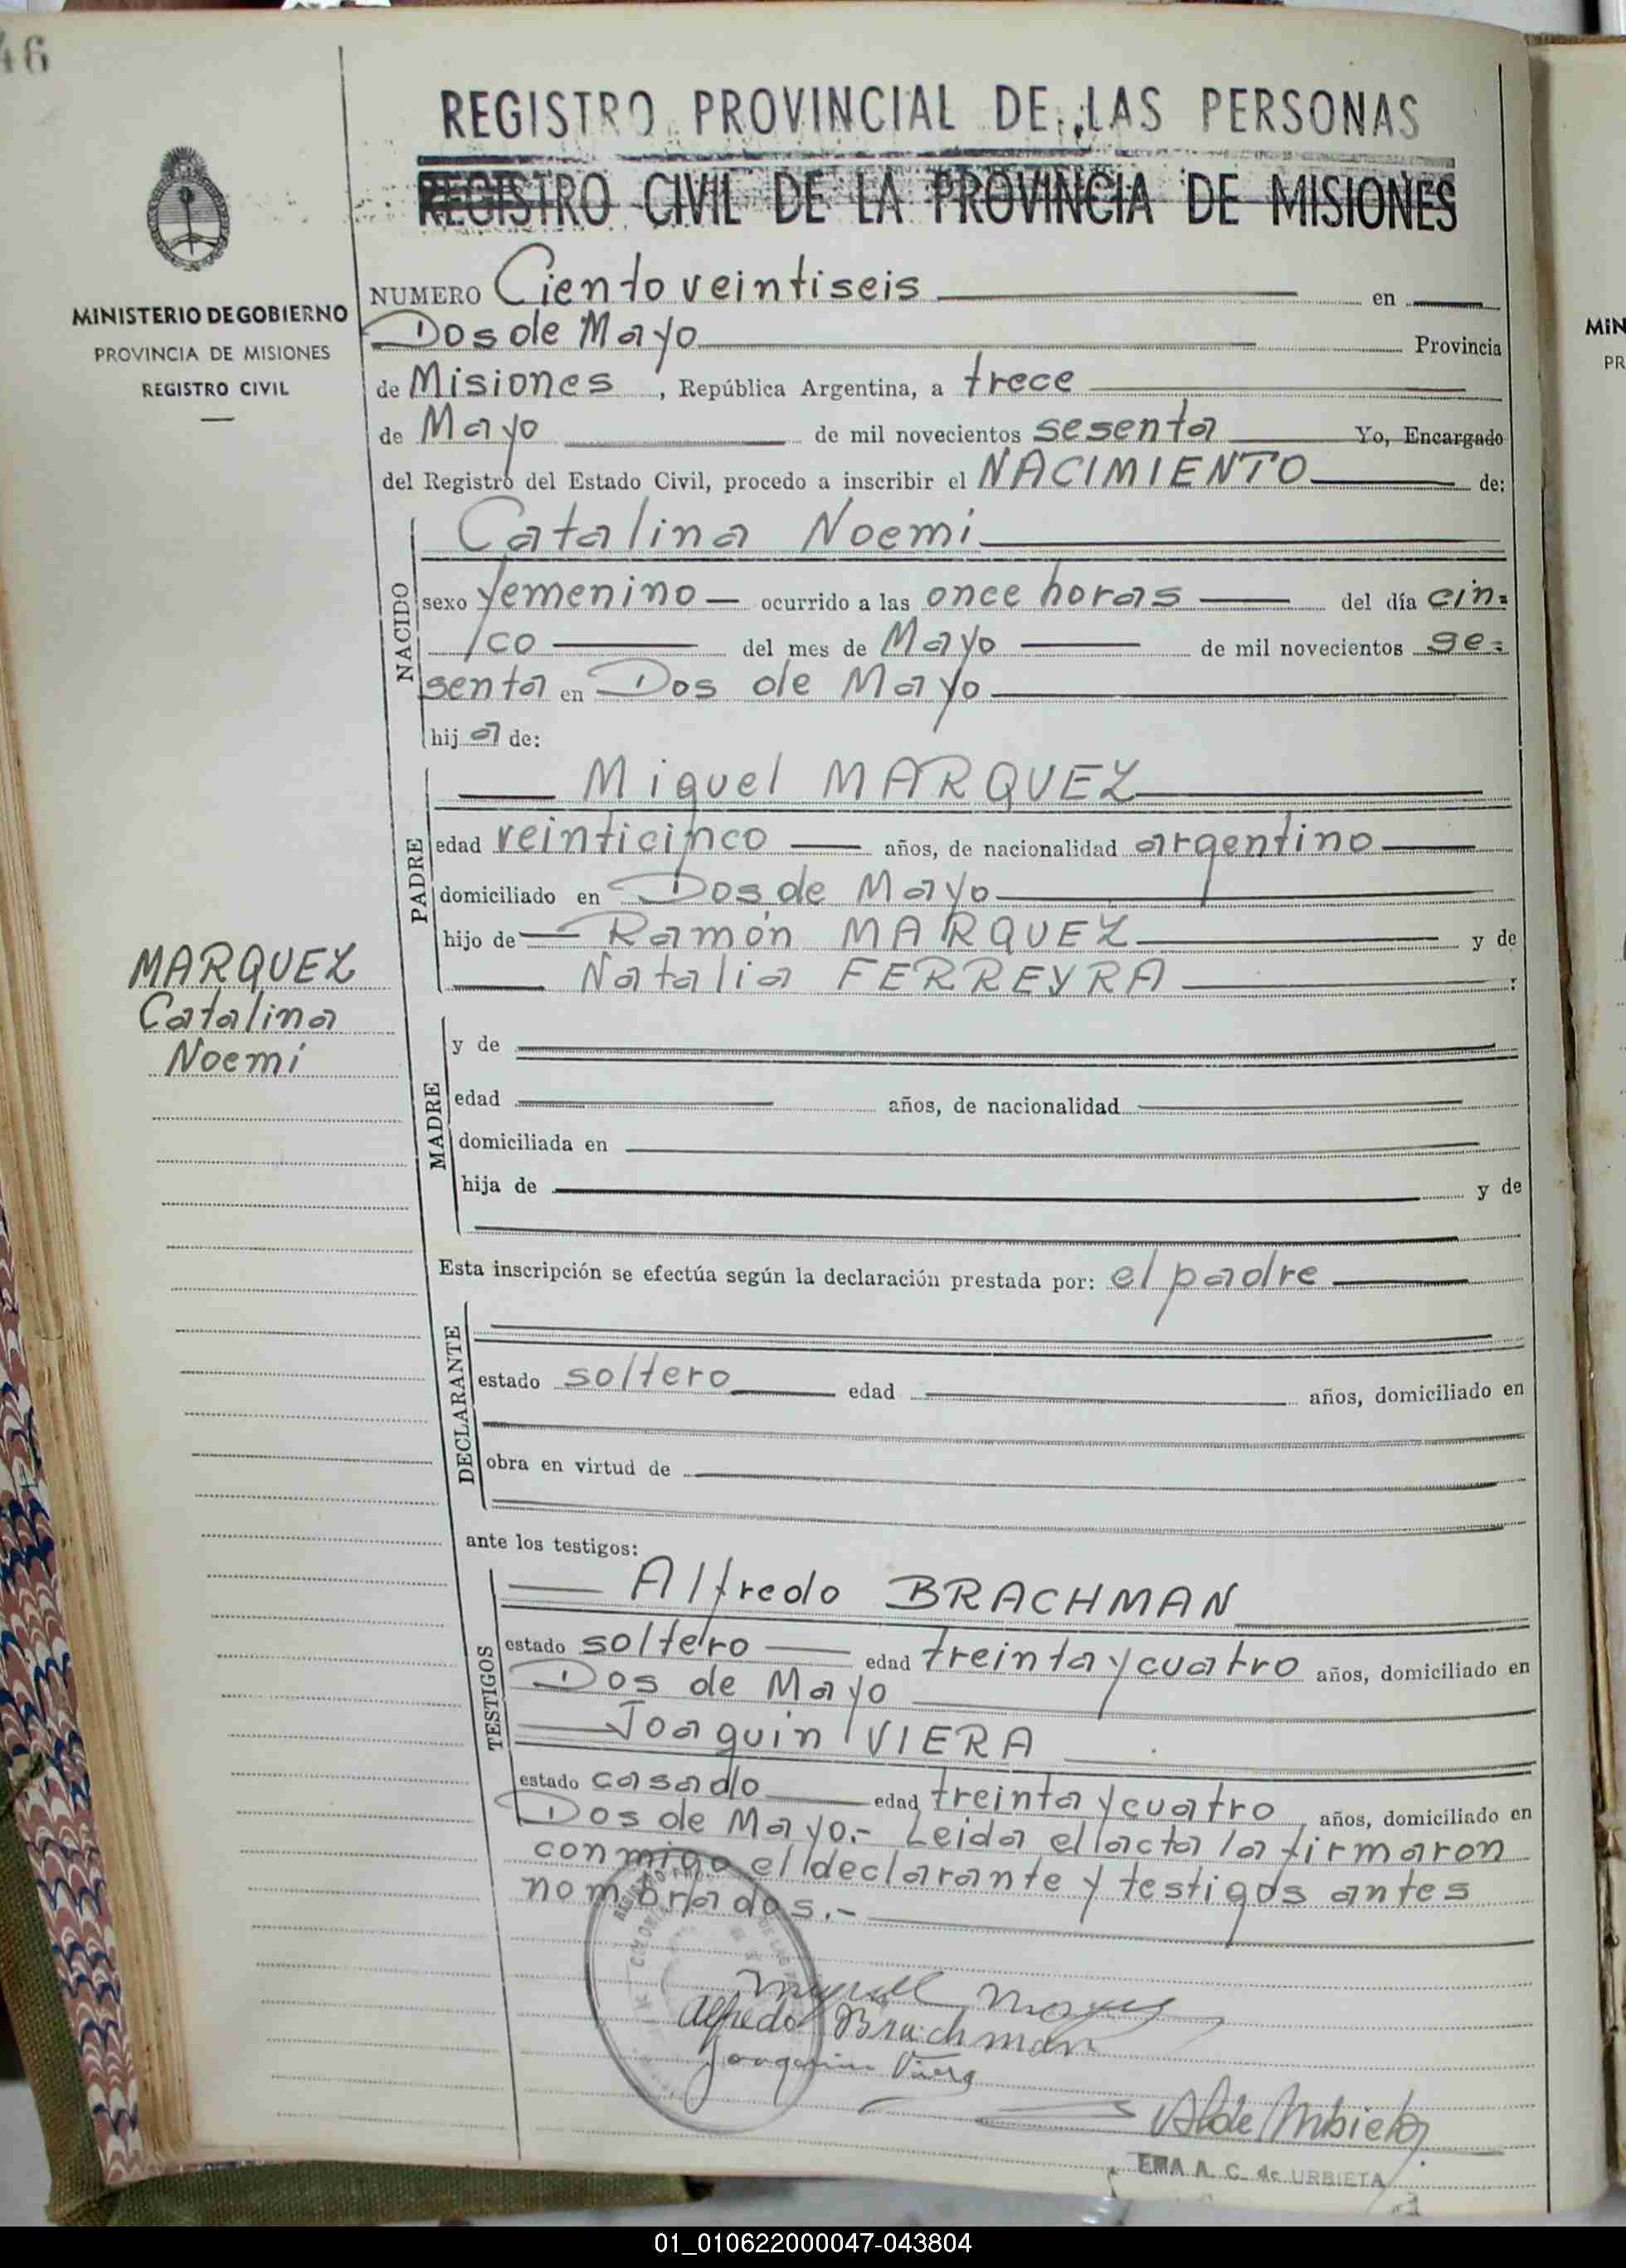 46
REGISTRO PROVINCIAL DE LAS PERSONAS
REGISTRO CIVIL DE LA PROVINCIA DE MISIONES
MINISTERIO DE GOBIERNO
PROVINCIA DE MISIONES
REGISTRO CIVIL
NUMERO Ciento veintiseis en
Dos de Mayo Provincia
de Misiones, República Argentina, a trece
de Mayo de mil novecientos sesenta Yo, Encargado
del Registro del Estado Civil, procedo a inscribir el NACIMIENTO de:
NACIDO
Catalina Noemi
sexo femenino ocurrido a las once horas del día cin=
co del mes de Mayo de mil novecientos se=
senta en Dos de Mayo
hija de:
PADRE
Miguel MARQUEZ
edad veinticinco años, de nacionalidad argentino
domiciliado en Dos de Mayo
hijo de Ramón MARQUEZ y de
Natalia FERREYRA :
MARQUEZ
Catalina
Noemi
MADRE
y de
edad años, de nacionalidad
domiciliada en
hija de y de
Esta inscripción se efectúa según la declaración prestada por: el padre
DECLARANTE
estado soltero edad años, domiciliado en
obra en virtud de
ante los testigos:
TESTIGOS
Alfredo BRACHMAN
estado soltero edad treinta y cuatro años, domiciliado en
Dos de Mayo
Joaquin VIERA
estado casado edad treinta y cuatro años, domiciliado en
Dos de Mayo.- Leida el acta la firmaron
conmigo el declarante y testigos antes
nombrados.-
Miguel Marquez
Alfredo Brachman
Joaquin Viera
EMA A. C. de URBIETA
MIN
PR
01_010622000047-043804